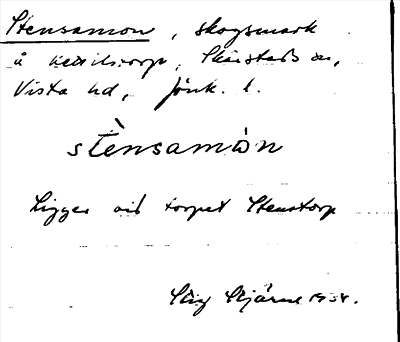 Stensamon, skogsmark
å Kettilstorp, Skärstads sn,
Vista hd, Jönk. l.
stènsamòn
Ligger vid torpet Stenstorp
Stig Stjärne